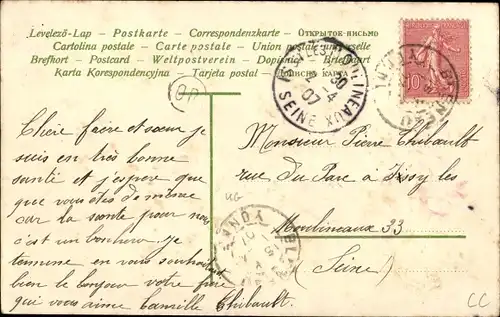 Levelező-Lap — Postkarte — Correspondenzkarte — Открытое-письмо
Cartolina postale — Carte postale — Union postale universelle
Brefkort — Postcard — Weltpostverein — Dopisnice — Briefkaart
Karta Korespondencyjna — Tarjeta postal — Почтовая карта
ISSY LES MOULINEAUX
30
2-4
07
SEINE
10
YONNE
OP
UG
Chère et sœur je
suis en très bonne
santé et j'espère que
que vous êtes de même
car la santé pour nous
c'est un bonheur. Je
termine en vous souhaitant
bien le bonjour votre
qui vous aime Camille Thibault.
Monsieur Pierre Thibault
rue du Parc à Issy les
Moulineaux 33
(Seine)
CC